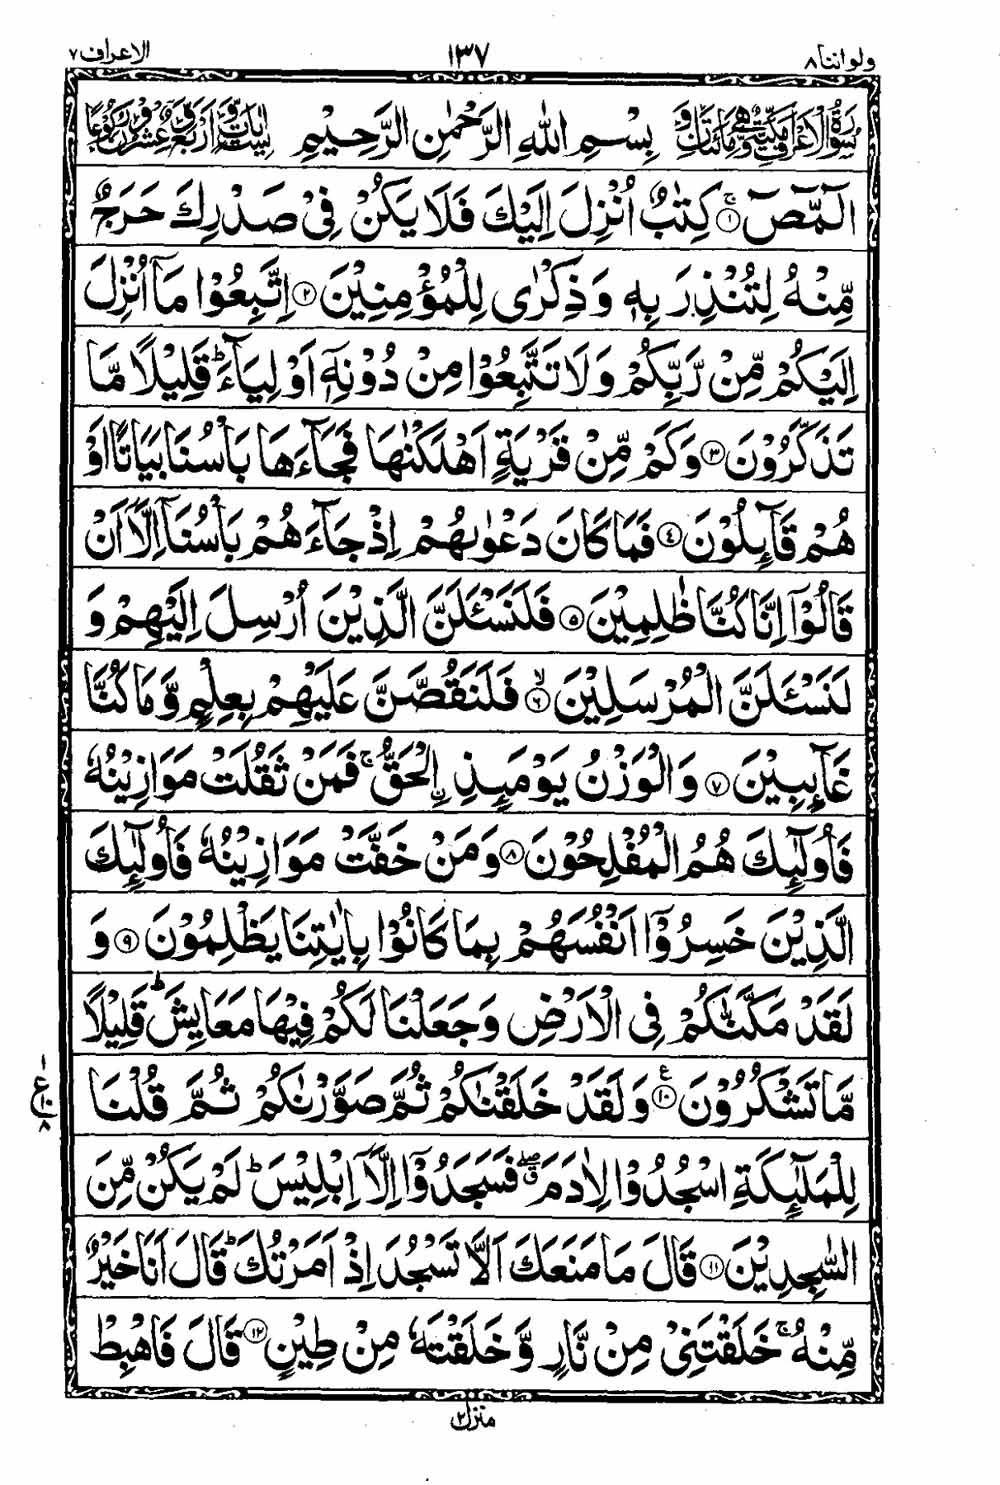 ولواننا ٨
١٣٧
الاعراف ٧
سُوْرَةُ الْاَعْرَافِ مَكِّيَّةٌ وَّهِیَ مِائَتَانِ وَّ بِسْمِ اللهِ الرَّحْمٰنِ الرَّحِيْمِ سِتُّ اٰيَاتٍ وَّ اَرْبَعٌ وَّعِشْرُوْنَ رُكُوْعًا
الٓمّٓصٓ ۚ﴿١﴾ كِتٰبٌ اُنْزِلَ اِلَيْكَ فَلَا يَكُنْ فِیْ صَدْرِكَ حَرَجٌ
مِّنْهُ لِتُنْذِرَ بِهٖ وَذِكْرٰی لِلْمُؤْمِنِيْنَ ﴿٢﴾ اِتَّبِعُوْا مَاۤ اُنْزِلَ
اِلَيْكُمْ مِّنْ رَّبِّكُمْ وَلَا تَتَّبِعُوْا مِنْ دُوْنِهٖۤ اَوْلِيَآءَ ؕ قَلِيْلًا مَّا
تَذَكَّرُوْنَ ﴿٣﴾ وَكَمْ مِّنْ قَرْيَةٍ اَهْلَكْنٰهَا فَجَآءَهَا بَاْسُنَا بَيَاتًا اَوْ
هُمْ قَآئِلُوْنَ ﴿٤﴾ فَمَا كَانَ دَعْوٰىهُمْ اِذْ جَآءَهُمْ بَاْسُنَاۤ اِلَّاۤ اَنْ
قَالُوْۤا اِنَّا كُنَّا ظٰلِمِيْنَ ﴿٥﴾ فَلَنَسْـَٔلَنَّ الَّذِيْنَ اُرْسِلَ اِلَيْهِمْ وَ
لَنَسْـَٔلَنَّ الْمُرْسَلِيْنَ ۙ﴿٦﴾ فَلَنَقُصَّنَّ عَلَيْهِمْ بِعِلْمٍ وَّمَا كُنَّا
غَآئِبِيْنَ ﴿٧﴾ وَالْوَزْنُ يَوْمَئِذِ ۨالْحَقُّ ۚ فَمَنْ ثَقُلَتْ مَوَازِيْنُهٗ
فَاُولٰٓئِكَ هُمُ الْمُفْلِحُوْنَ ﴿٨﴾ وَمَنْ خَفَّتْ مَوَازِيْنُهٗ فَاُولٰٓئِكَ
الَّذِيْنَ خَسِرُوْۤا اَنْفُسَهُمْ بِمَا كَانُوْا بِاٰيٰتِنَا يَظْلِمُوْنَ ﴿٩﴾ وَ
لَقَدْ مَكَّنّٰكُمْ فِی الْاَرْضِ وَجَعَلْنَا لَكُمْ فِيْهَا مَعَايِشَ ؕ قَلِيْلًا
مَّا تَشْكُرُوْنَ ﴿١٠﴾ع وَلَقَدْ خَلَقْنٰكُمْ ثُمَّ صَوَّرْنٰكُمْ ثُمَّ قُلْنَا
١
ع
١٠
٨
لِلْمَلٰٓئِكَةِ اسْجُدُوْا لِاٰدَمَ ۖۗ فَسَجَدُوْۤا اِلَّاۤ اِبْلِيْسَ ؕ لَمْ يَكُنْ مِّنَ
السّٰجِدِيْنَ ﴿١١﴾ قَالَ مَا مَنَعَكَ اَلَّا تَسْجُدَ اِذْ اَمَرْتُكَ ؕ قَالَ اَنَا خَيْرٌ
مِّنْهُ ۚ خَلَقْتَنِیْ مِنْ نَّارٍ وَّخَلَقْتَهٗ مِنْ طِيْنٍ ﴿١٢﴾ قَالَ فَاهْبِطْ
منزل ٢